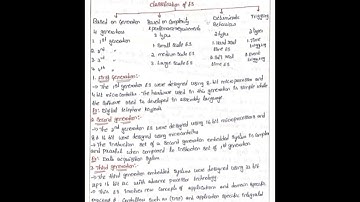 Classification of ES
Based on Generation Based on Complexity Deterministic Triggering
4 generations & performance requirements Behaviour
1st generation 3 types 2 types 2 types
2nd " 1. Small scale ES 1. Hard Real
3rd " 2. medium scale ES time ES
4th " 3. Large scale ES 2. Soft Real
time ES
1. First Generation:
→ The 1st generation ES were designed using 8 bit microprocessor and
4 bit microcontroller. The hardware used in this generation is simple while
the software used is developed in assembly language
Ex: Digital telephone keypads
2. Second generation:
→ The 2nd generation ES were designed using 16 bit microprocessors and
8 & 16 bit were designed using microcontrollers
→ The Instruction set of a second generation embedded system is complex
and powerful when compared to instruction set of 1st generation
Ex: Data acquisition system
3. Third generation:
→ The third generation embedded systems were designed using 32 bit
μps & 16 bit μc with advance processor technology
→ This ES involves new concepts of applications and domain specific
process & controllers such as (DSP) and application specific Integrated